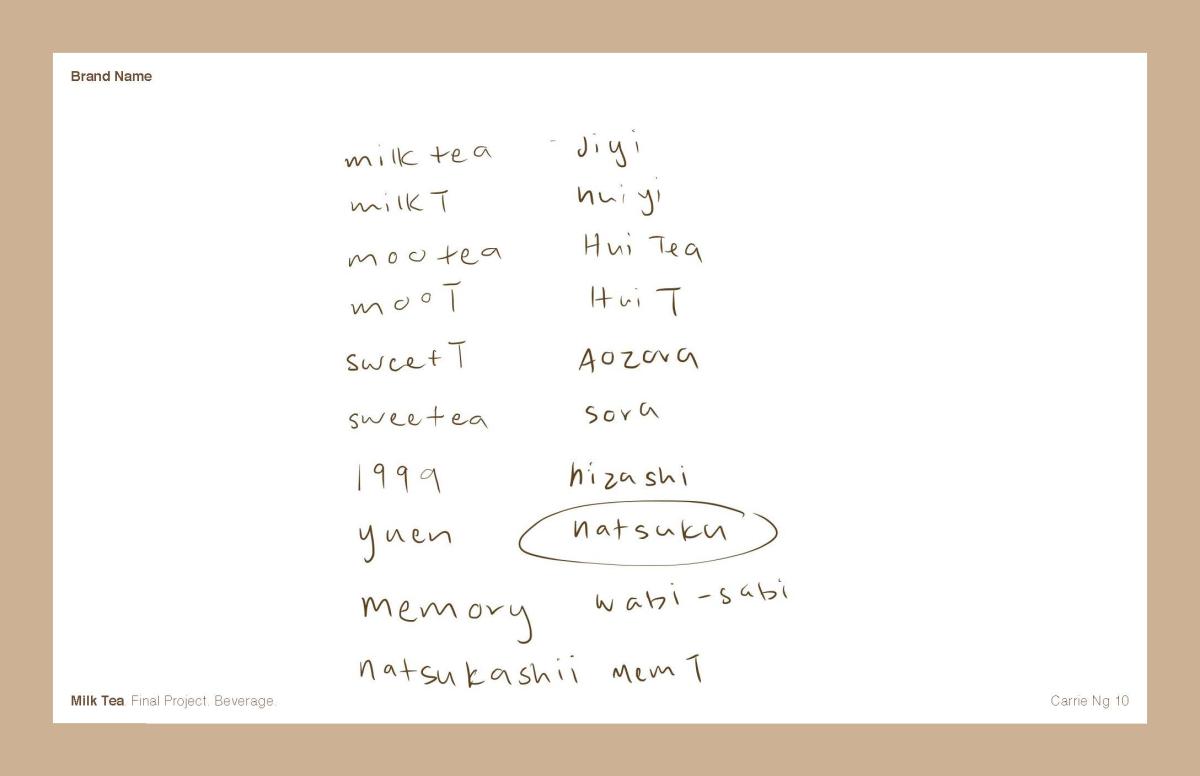 Brand Name
milk tea
milk T
moo tea
moo T
sweet T
sweetea
1999
yuen
memory
natsukashii
Jiyi
hui yi
Hui Tea
Hui T
Aozora
sora
hizashi
natsuku
wabi-sabi
Mem T
Milk Tea. Final Project. Beverage.
Carrie Ng 10